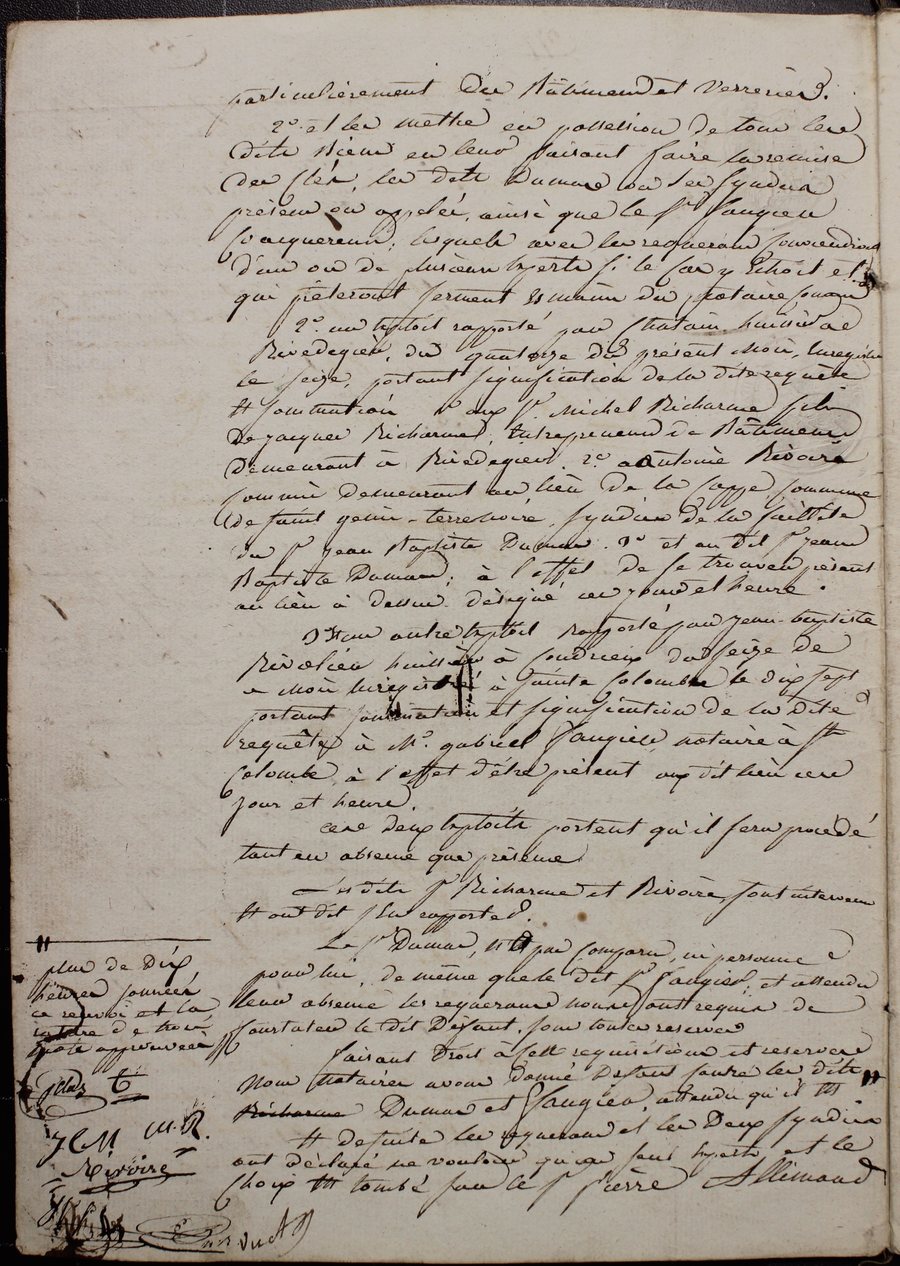 particulièrement des Bâtiments et Verreries.
2° et les mettre en possession de tous les
dits biens en leur faisant faire la remise
des Clés, les dits Dumas ou ses syndics
présens ou appelés, ainsi que le Sr. Jangien
Coacquereur; lesquels avec les requerans conviendront
d'un ou de plusieurs Experts si le Cas y Echoit et
qui prêteront serment Es mains du notaire
2° un Exploit rapporté par Chatain huissier de
Rivedegier, du quatorze du présent Mois, Enregistré
le seize, portant signification de la dite requête
Et sommation 1° aux Sr. Michel Richarme fils
de jacques Richarme, Entrepreneur de Bâtimens
demeurant à Rivedegier. 2° antoine Rivoire
Commis demeurant au lieu de la Cappe, Commune
de saint genis-terrenoire, syndics de la faillite
du Sr. jean Baptiste Dumas. 3° et au dit Sr. jean
Baptiste Dumas; à l'effet de se trouver présens
au lieu à dessus désigné ces jour et heure.
3° Et un autre Exploit rapporté par jean-baptiste
huissier à Condrieu du seize de
ce Mois Enregistré à Sainte Colombe le dix sept
portant sommation et signification de la dite
requête à Me. gabriel Jangien notaire à Ste
Colombe, à l'effet d'être présent aux dit lieu ces
jour et heure.
ces deux Exploits portent qu'il sera procédé
tant en absence que présence
Les dits Srs. Richarme et Rivoire, sont intervenus
Et ont dit s'En rapporter.
Le Sr. Dumas, n'Est pas Comparu, ni personne
pour lui, de même que le dit Sr. Jangien; et attendu
leur absence les requerans nous ont requis de
Constater le dit Défaut, sous toutes reserves
faisant droit à Cette requisition et reserves
Nous Notaires avons donné Défaut contre les dits
Richarme Dumas et Jangien, attendu qu'il Est
Et de suite les requerans et les Deux syndics
ont déclaré ne vouloir qu'un seul Expert, et le
Choix Est tombé sur le Sr. pierre Allimand
plus de Dix
heures sonnées
ce renvoi et la
rature de trois
mots approuvés
JCM M.R.
Rivoire